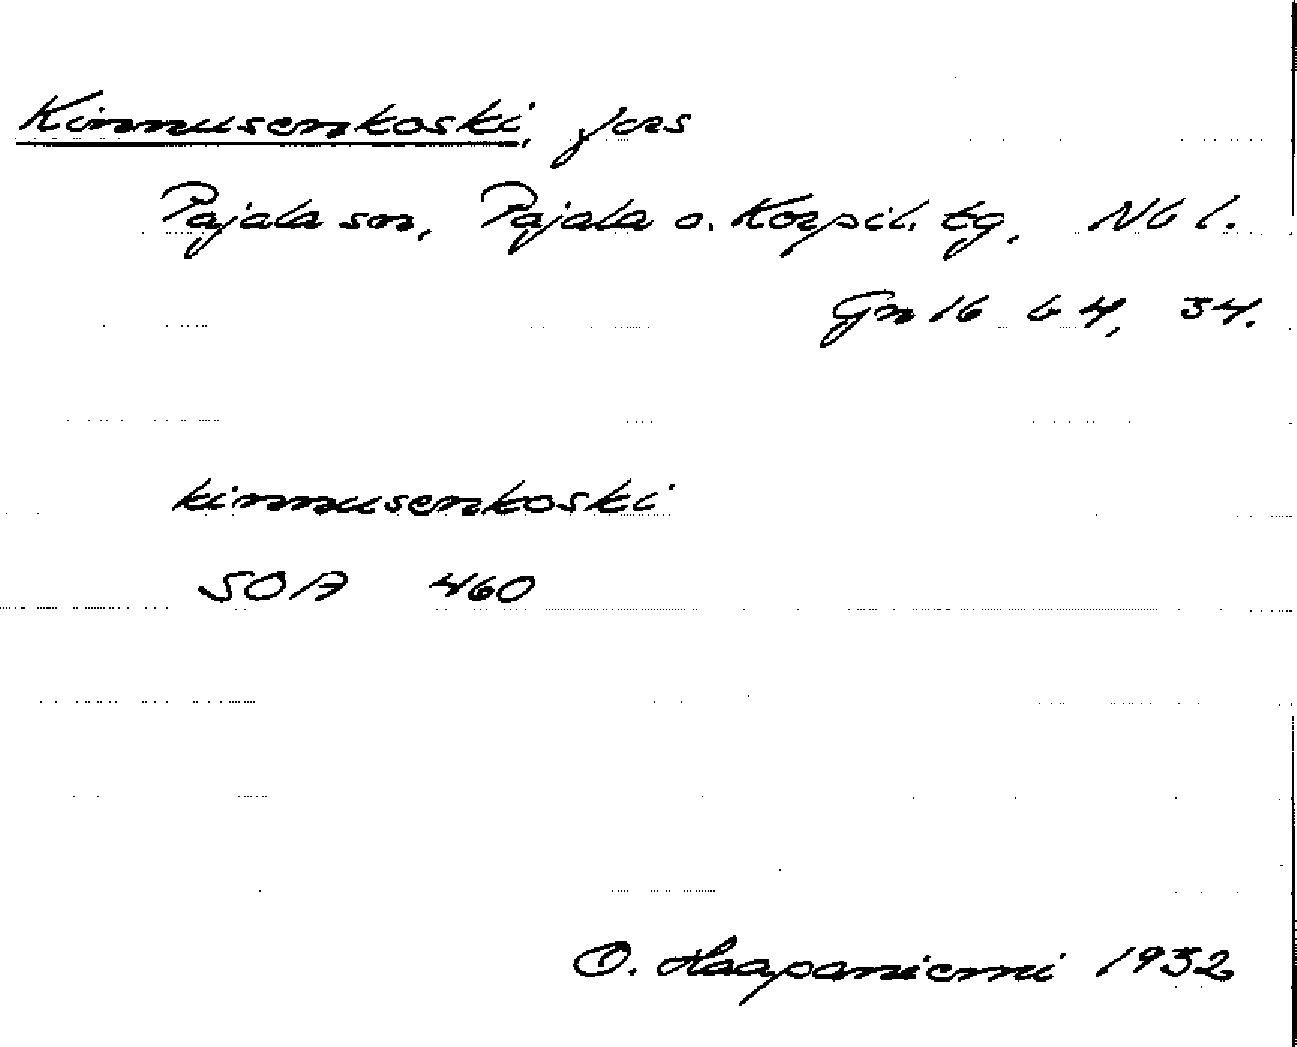 Kinnusenkoski, fors
Pajala sn, Pajala o. Korpil. tg. Nb l.
Gn 16 b 4, 34.
kinnusenkoski
SOA 460
O. Haapaniemi 1932